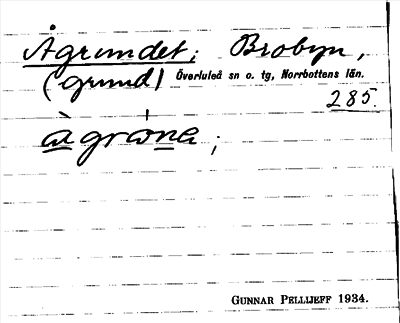 Ågrundet; Brobyn,
(grund) Överluleå sn o. tg, Norrbottens län.
285.
GUNNAR PELLIJEFF 1934.